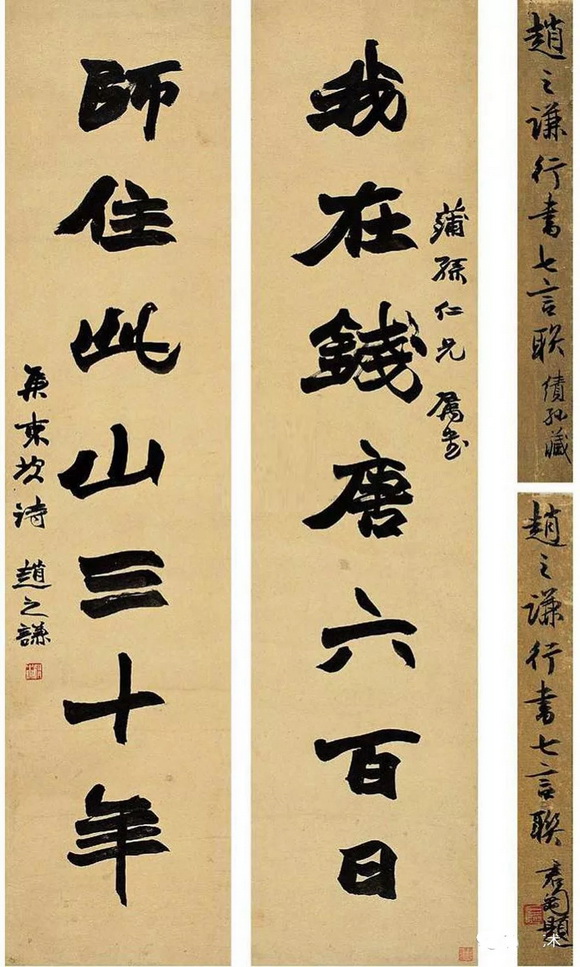 趙之谦行書七言联 績孙藏
趙之谦行書七言聯 君匋題
蒲孫仁兄 属書
我在錢唐六百日
師住此山三十年
集東坡詩 趙之謙